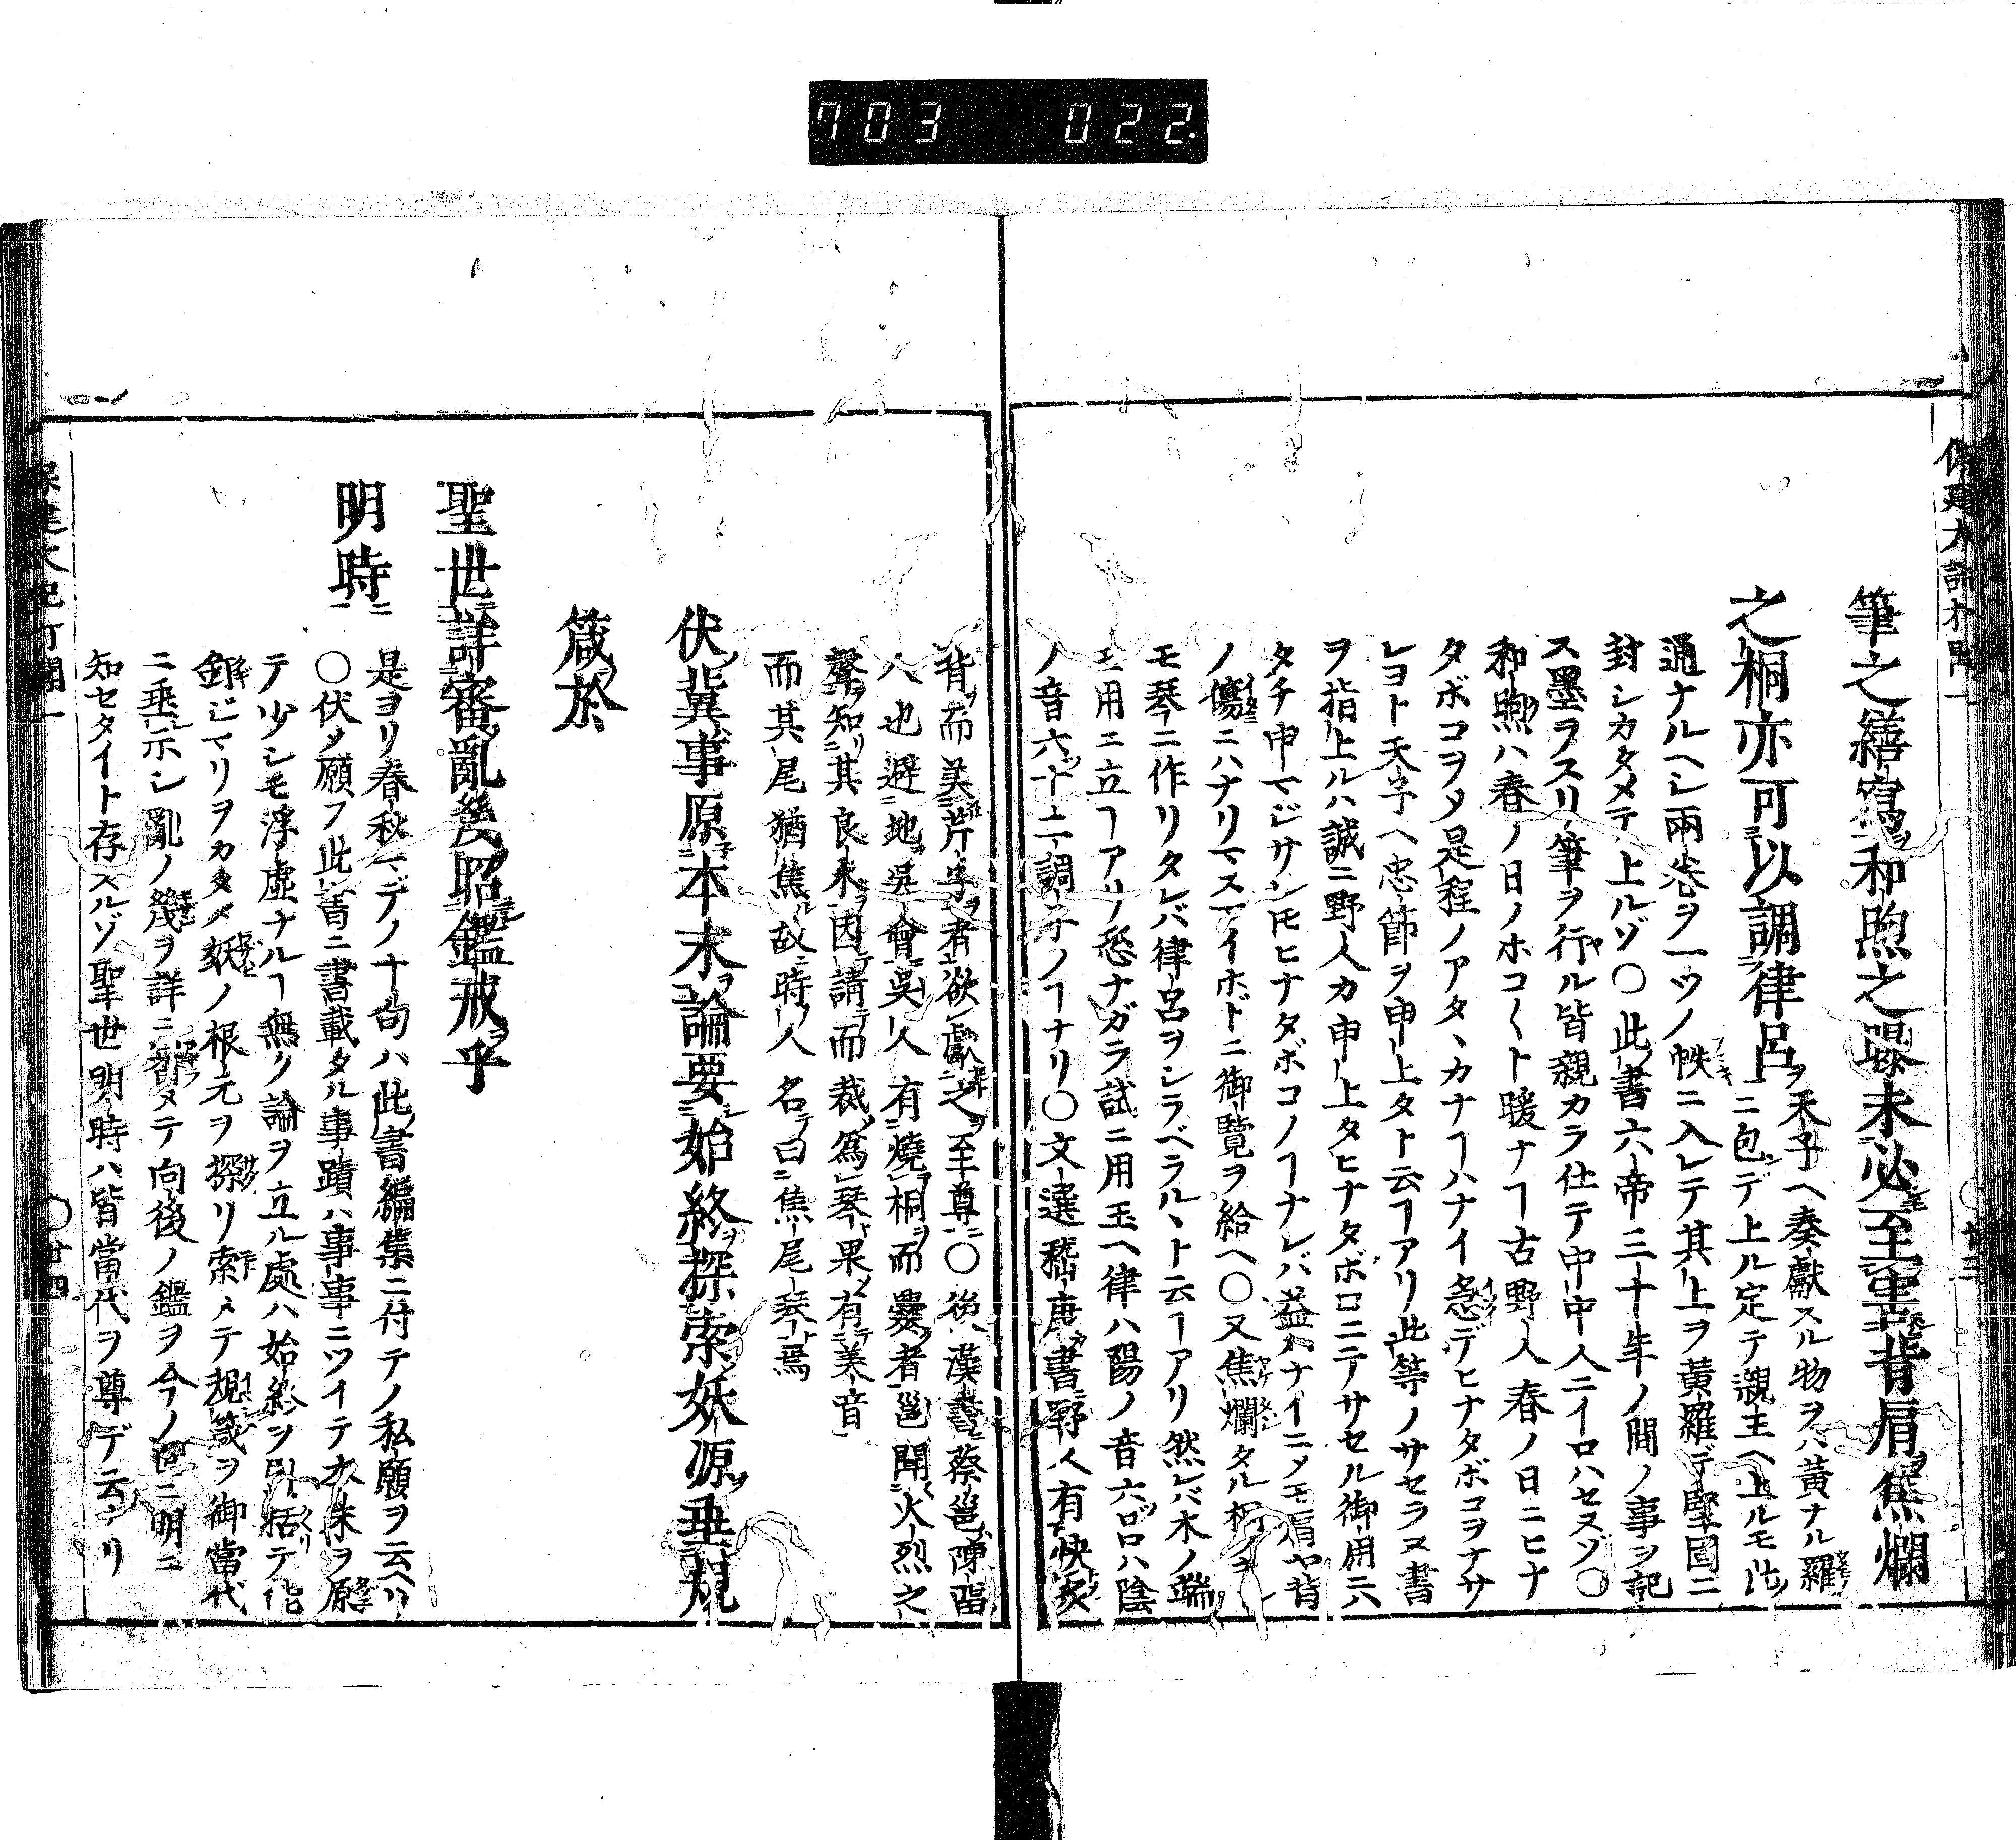 703 022
筆之繕寫和煦之曝未必至害背肩焦爛
之桐亦可以調律呂ヲ天子ヘ奏獻スル物ヲハ黃ナル羅
ニ包デ上ル定テ親王ヘ上ルモ此
通ナルヘシ兩卷ヲ一ツノ帙ニ入レテ其上ヲ黃羅デ堅固ニ
封シカタメテ上ルゾ〇此書六帝三十年ノ間ノ事ヲ記
ス墨ヲスリ筆ヲ行ル皆親カラ仕テ中中人ニイロハセヌゾ〇
和煦ハ春ノ日ノホコ〱ト暖ナヿ古野人春ノ日ニヒナ
タボコヲメ是程ノアタヽカナヿハナイ急デヒナタボコヲナサ
レヨト天子ヘ忠節ヲ申上タト云ヿアリ此等ノサセラヌ書
ヲ指上ルハ誠ニ野人カ申上タヒナタボロニテサセル御用ニハ
タチ申マジサレ𪜈ヒナタボコノヿナレバ益ハナイニメモ肩ヤ背
ノ傷ニハナリマスマイホドニ御覽ヲ給ヘ〇又焦爛タル桐
モ琴ニ作リタレバ律呂ヲシラベラルヽト云ヿアリ然レバ木ノ端
モ用ニ立ヿアリ恐ナガラ試ニ用玉ヘ律ハ陽ノ音六ツ呂ハ陰
ノ音六ツ十二調子ノヿナリ〇文選嵆康書野人有快炙
背ヲ而美芹子ヲ者欲獻之ヲ至尊ニ〇後漢書蔡邕陳留
人也避地吳會吳人有燒桐而爨者邕聞火烈之
聲ヲ知其良木因請而裁爲琴果有美音
而其尾猶焦故時人名曰焦尾琴焉
伏冀事原本末論要始終探索妖源垂規
箴於
聖世詳審亂幾昭鑑戒乎
明時ニ是ヨリ春秋マデノ十句ハ此書編集ニ付テノ私願ヲ云ヘリ
〇伏メ願フ此書ニ書載タル事蹟ハ事事ニツイテ本末ヲ原
テ少シモ浮虛ナルヿ無ク論ヲ立ル處ハ始終ヲ引括テ能
釦ジマリヲカタメ妖ノ根元ヲ探リ索メテ規箴ヲ御當代
ニ垂示シ亂ノ幾ヲ詳ニ審メテ向後ノ鑑ヲ今ノ世ニ明ニ
知セタイト存スルゾ聖世明時ハ皆當代ヲ尊デ云ヘリ
〇廿四